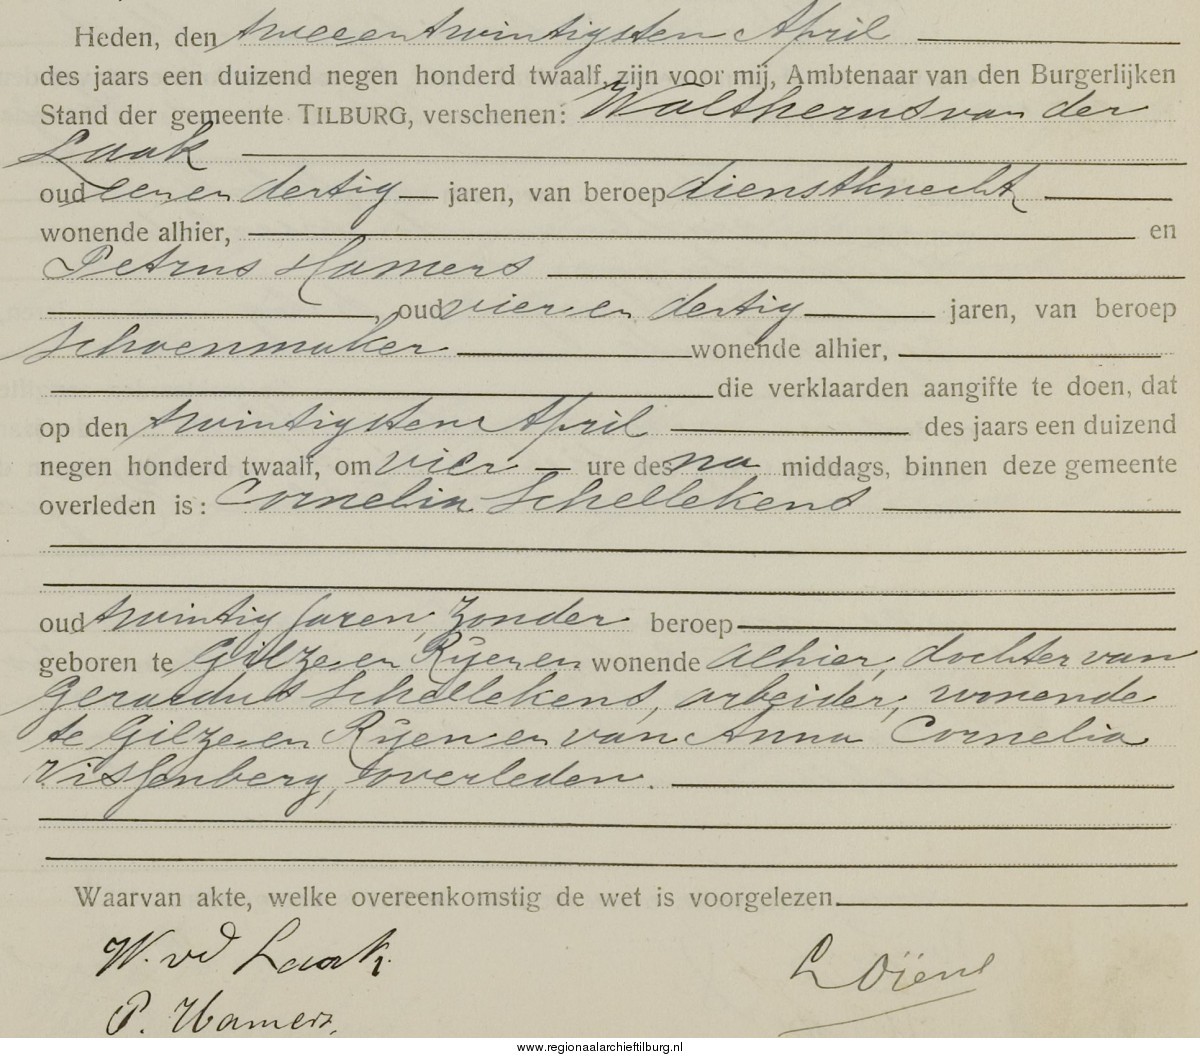 Heden, den tweeentwintigsten April
des jaars een duizend negen honderd twaalf, zijn voor mij, Ambtenaar van den Burgerlijken
Stand der gemeente TILBURG, verschenen: Waltherus van der
Laak
oud een en dertig jaren, van beroep dienstknecht
wonende alhier, en
Petrus Hamers
, oud vier en dertig jaren, van beroep
schoenmaker wonende alhier,
die verklaarden aangifte te doen, dat
op den twintigsten April des jaars een duizend
negen honderd twaalf, om vier ure des na middags, binnen deze gemeente
overleden is: Cornelia Schellekens
oud twintig jaren, zonder beroep
geboren te Gilze en Rijen en wonende alhier, dochter van
Gerardus Schellekens, arbeider, wonende
te Gilze en Rijen en van Anna Cornelia
Vissenberg, overleden.
Waarvan akte, welke overeenkomstig de wet is voorgelezen.
W. vd Laak.
P. Hamers.
www.regionaalarchieftilburg.nl